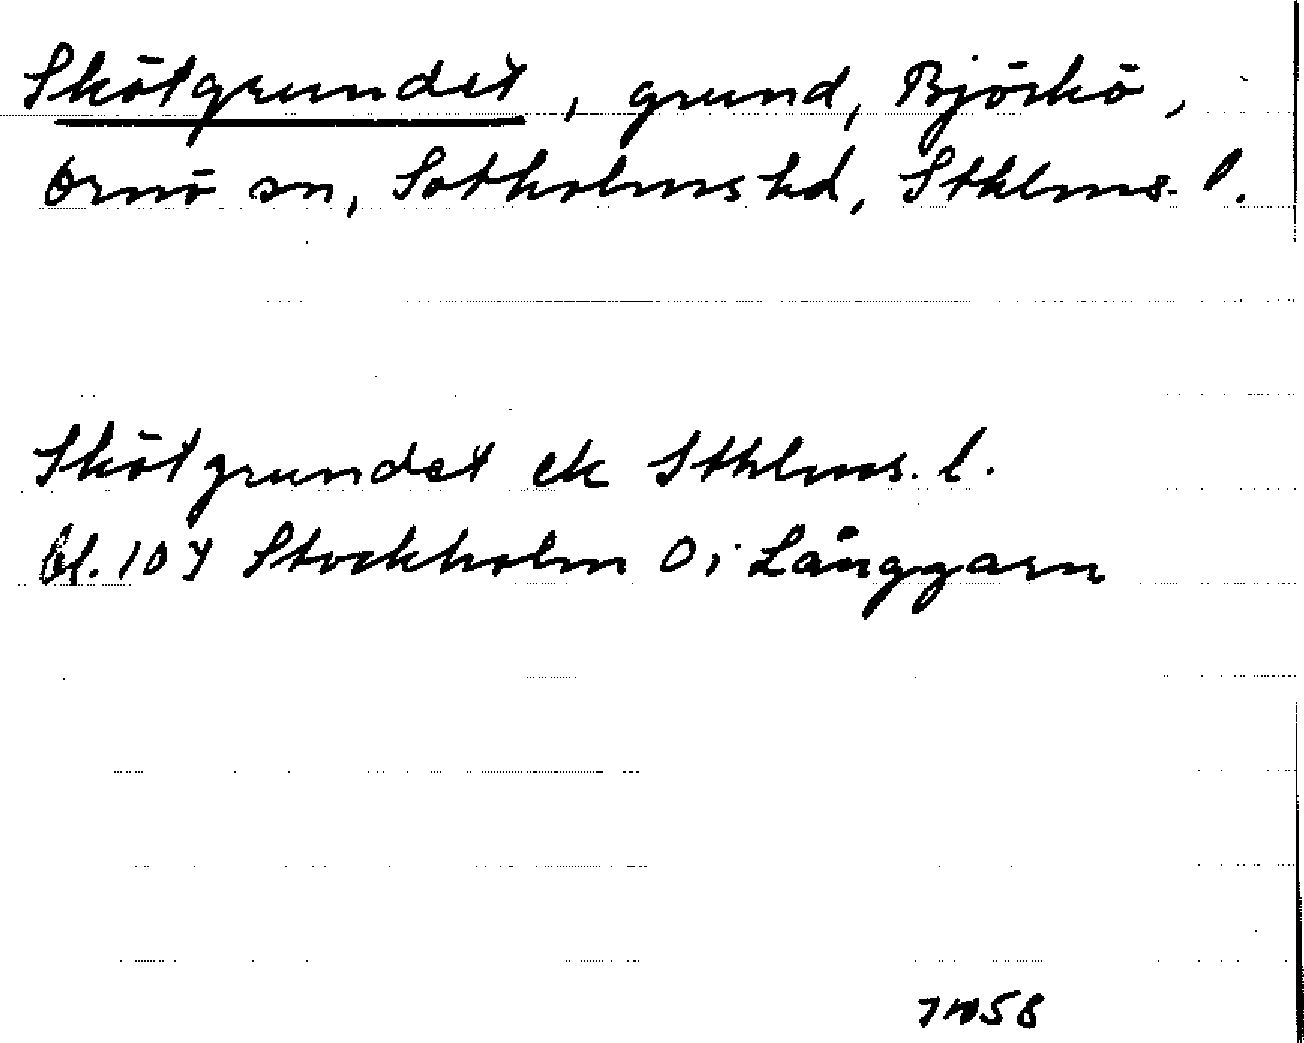 Skötgrundet, grund, Björkö,
Ornö sn, Sotholms hd, Sthlms. l.
Skötgrundet ek Sthlms. l.
bl. 107 Stockholm O; Långgarn